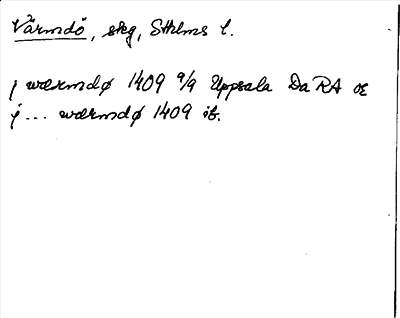 Värmdö, skg, Sthlms l.
j wærmdø 1409 9/9 Uppsala DaRA or
j... wærmdø 1409 ib.